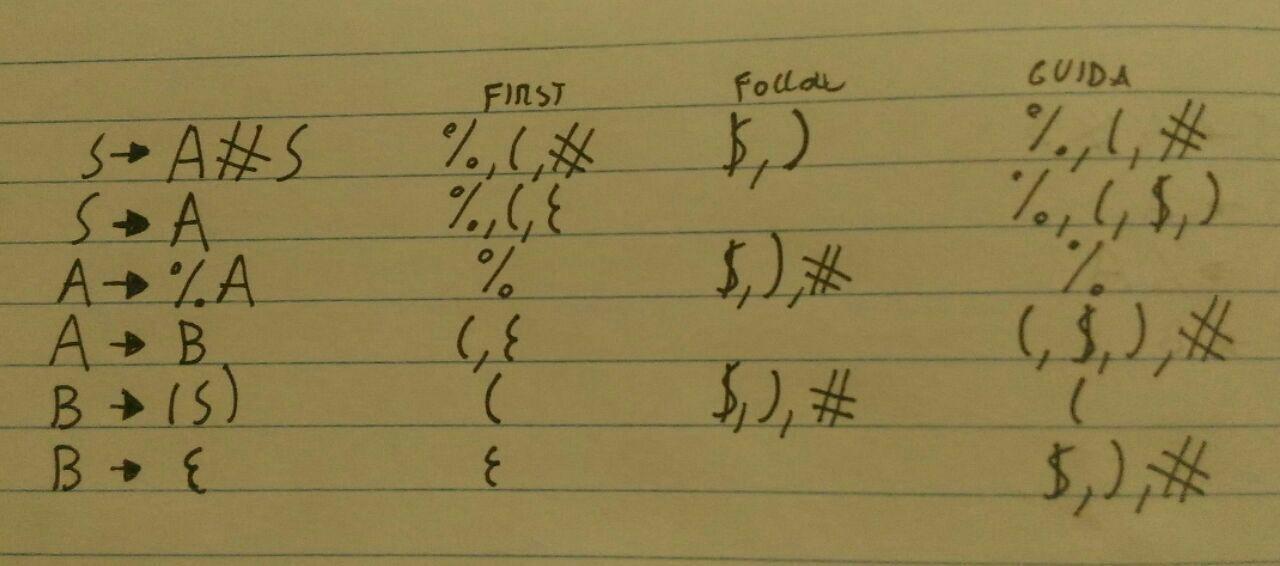 FIRST Follow GUIDA
S → A#S %,(,# $,) %,(,#
S → A %,(,ε %,(,$,)
A → %A % $,),# %
A → B (,ε (,$,),#
B → (S) ( $,),# (
B → ε ε $,),#